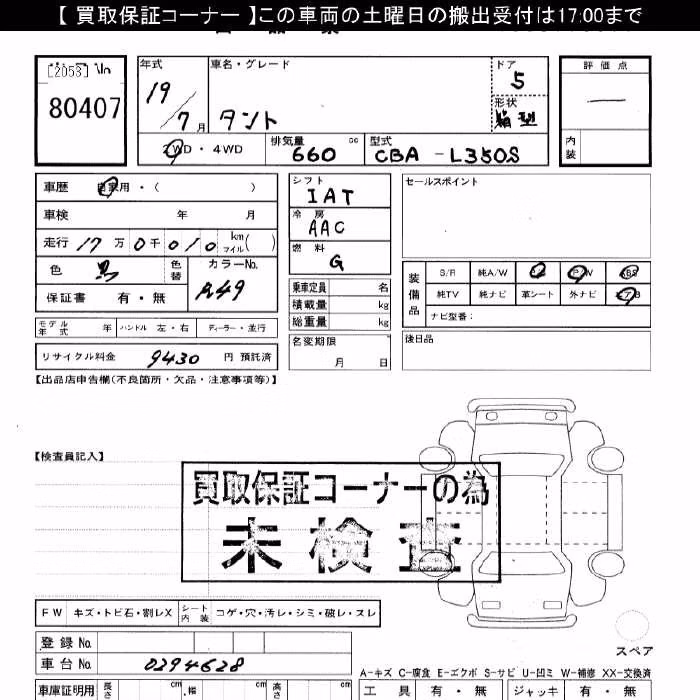 【 買取保証コーナー 】この車両の土曜日の搬出受付は17:00まで
[2053] No
80407
年式
19/7月
車名・グレード
タント
ドア
5
形状
箱型
評価点
—
内装
2WD・4WD
排気量
660 cc
型式
CBA-L350S
車歴 自家用・( )
車検 年 月
走行 17万0千010 km マイル( )
色 黒
色替
カラーNo.
A49
保証書 有・無
モデル年式 年 ハンドル 左・右 ディーラー・並行
リサイクル料金 9430 円 預託済
シフト
IAT
冷房
AAC
燃料
G
乗車定員 名
積載量 kg
総重量 kg
名変期限
月 日
セールスポイント
装備品
S/R 純A/W P/S P/W ABS
純TV 純ナビ 革シート 外ナビ エアB
ナビ型番:
後日品
【出品店申告欄(不良箇所・欠品・注意事項等)】
【検査員記入】
買取保証コーナーの為
未検査
FW キズ・トビ石・割レX シート内装 コゲ・穴・汚レ・シミ・破レ・スレ
スペア
登録 No.
車台 No. 0294628
A-キズ C-腐食 E-エクボ S-サビ U-凹ミ W-補修 XX-交換済
車庫証明用 長さ cm 幅 cm 高さ cm
工具 有・無 ジャッキ 有・無